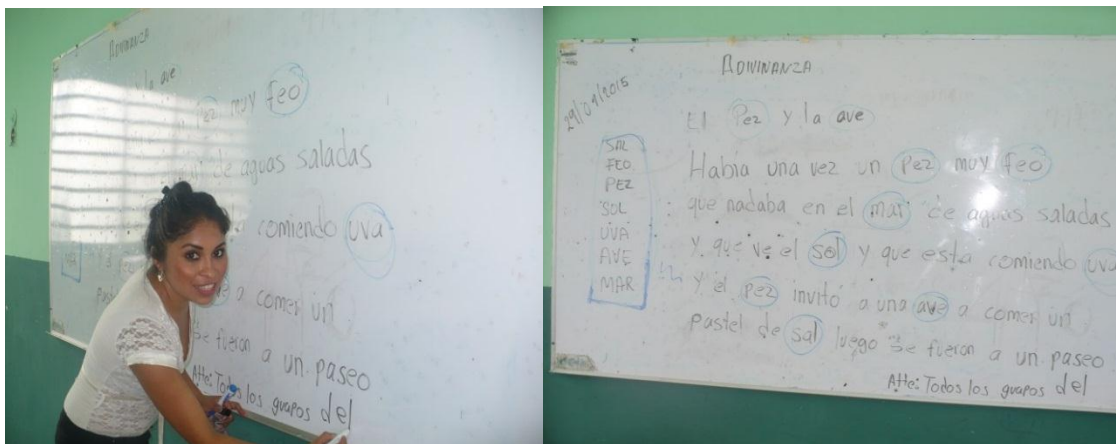 ADIVINANZA
la ave
Pez muy feo
de aguas saladas
comiendo uva
a comer un
Past
se fueron a un paseo
Atte: Todos los guapos del
ADIVINANZA
29/01/2015
El Pez y la ave
SAL
FEO
PEZ
SOL
UVA
AVE
MAR
Había una vez un Pez muy feo
que nadaba en el mar de aguas saladas
y que ve el sol y que esta comiendo uva
y el pez invitó a una ave a comer un
pastel de sal luego se fueron a un paseo
Atte: Todos los guapos del